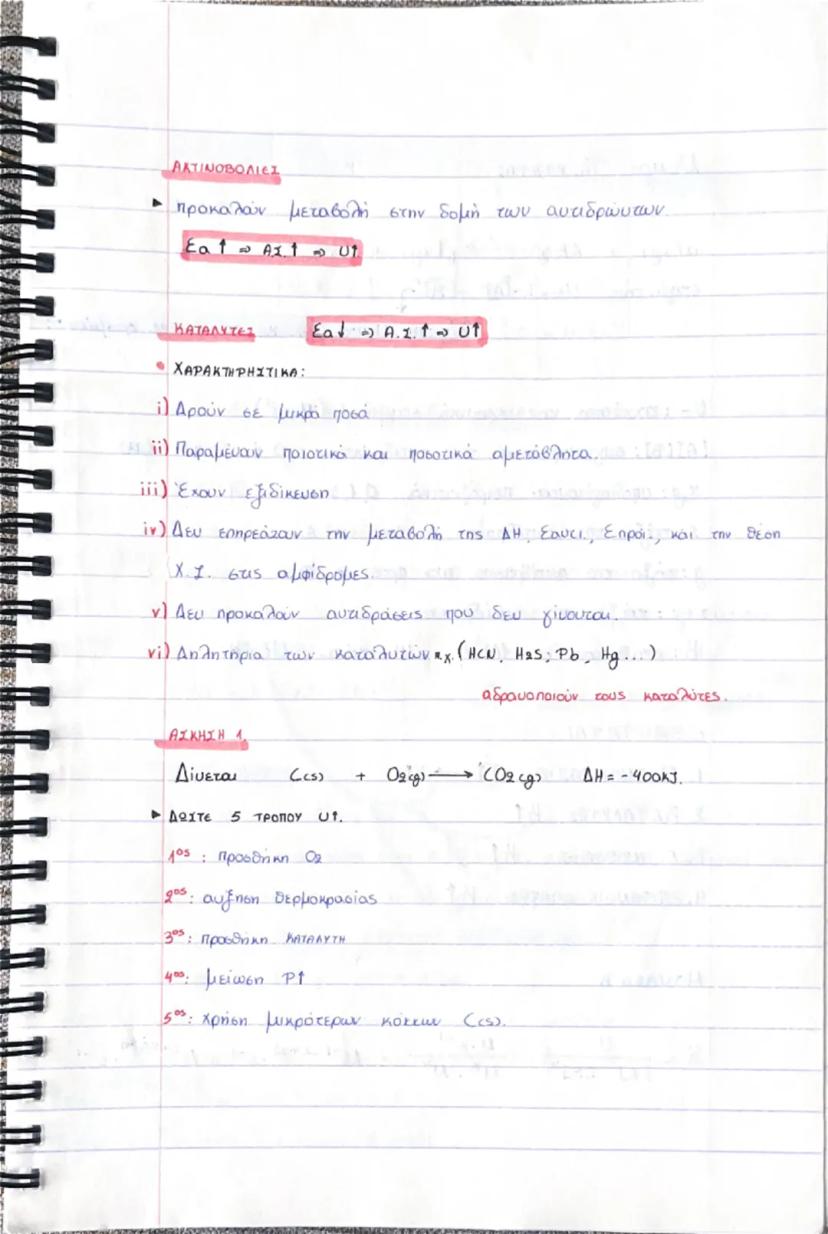 ΑΚΤΙΝΟΒΟΛΙΕΣ
► προκαλούν μεταβολή στην δομή των αντιδρώντων.
Εα ↑ ⇒ Α.Σ.↑ ⇒ υ↑
ΚΑΤΑΛΥΤΕΣ Εα↓ ⇒ Α.Σ.↑ ⇒ υ↑
• ΧΑΡΑΚΤΗΡΗΣΤΙΚΑ:
i) Δρούν σε μικρά ποσά
ii) Παραμένουν ποιοτικά και ποσοτικά αμετάβλητα.
iii) Έχουν εξιδίκευση
iv) Δεν επηρεάζουν την μεταβολή της ΔΗ, Εαντι., Επροϊ., και την θέση
Χ.Ι. στις αμφίδρομες.
v) Δεν προκαλούν αντιδράσεις που δεν γίνονται.
vi) Δηλητήρια των καταλυτών π.χ. (HCN, H2S, Pb, Hg...)
αδρανοποιούν τους καταλύτες.
ΑΣΚΗΣΗ 1.
Δίνεται C(s) + O2(g) ⟶ CO2(g) ΔΗ = -400KJ.
► ΔΩΣΤΕ 5 ΤΡΟΠΟΥ υ↑.
1ος : προσθήκη O2
2ος: αυξηση θερμοκρασίας
3ος: προσθήκη ΚΑΤΑΛΥΤΗ
4ος: μείωση P↑
5ος: χρήση μικρότερων κόκκων C(s).